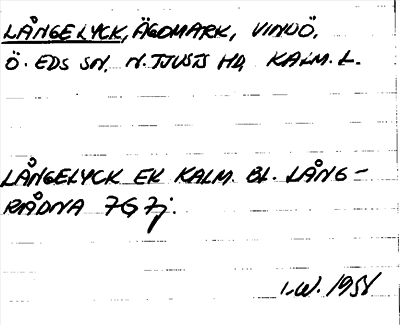 LÅNGELYCK, ÄGOMARK, VINDÖ,
Ö. EDS SN, N. TJUSTS HD, KALM. L.
LÅNGELYCK EK KALM. BL. LÅNG-
RÅDNA 7G 7j.
I.W. 1958